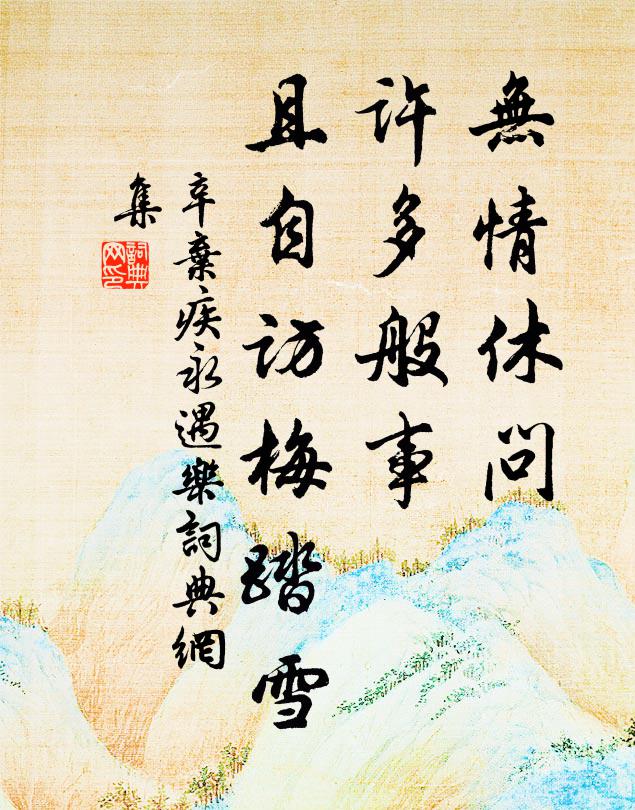 無情休問
許多般事
且自訪梅踏雪
辛棄疾永遇樂詞典網
集
詞典网印